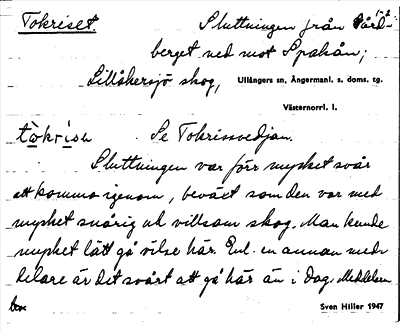 Tokriset. Sluttningen från Bård- 1-2
berget ned mot Spakån;
Lillåkersjö skog, Ullångers sn, Ångermanl. s. doms. tg.
Västernorrl. l.
tòkrìsn Se Tokrissvedjan.
Sluttningen var förr mycket svår
att komma igenom, beväxt som den var med
mycket snårig och villsam skog. Man kunde
mycket lätt gå vilse här. Enl. en annan med-
delare är det svårt att gå här än i dag.
Sven Hiller 1947